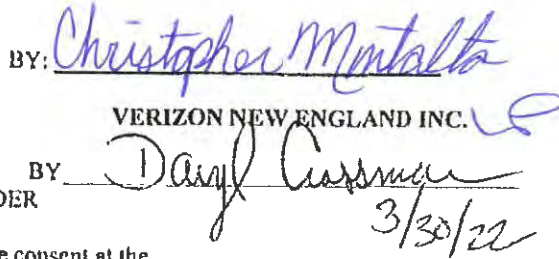 BY: Christopher Montalto
VERIZON NEW ENGLAND INC.
BY Daryl Crossman
DER
3/30/22
e consent at the